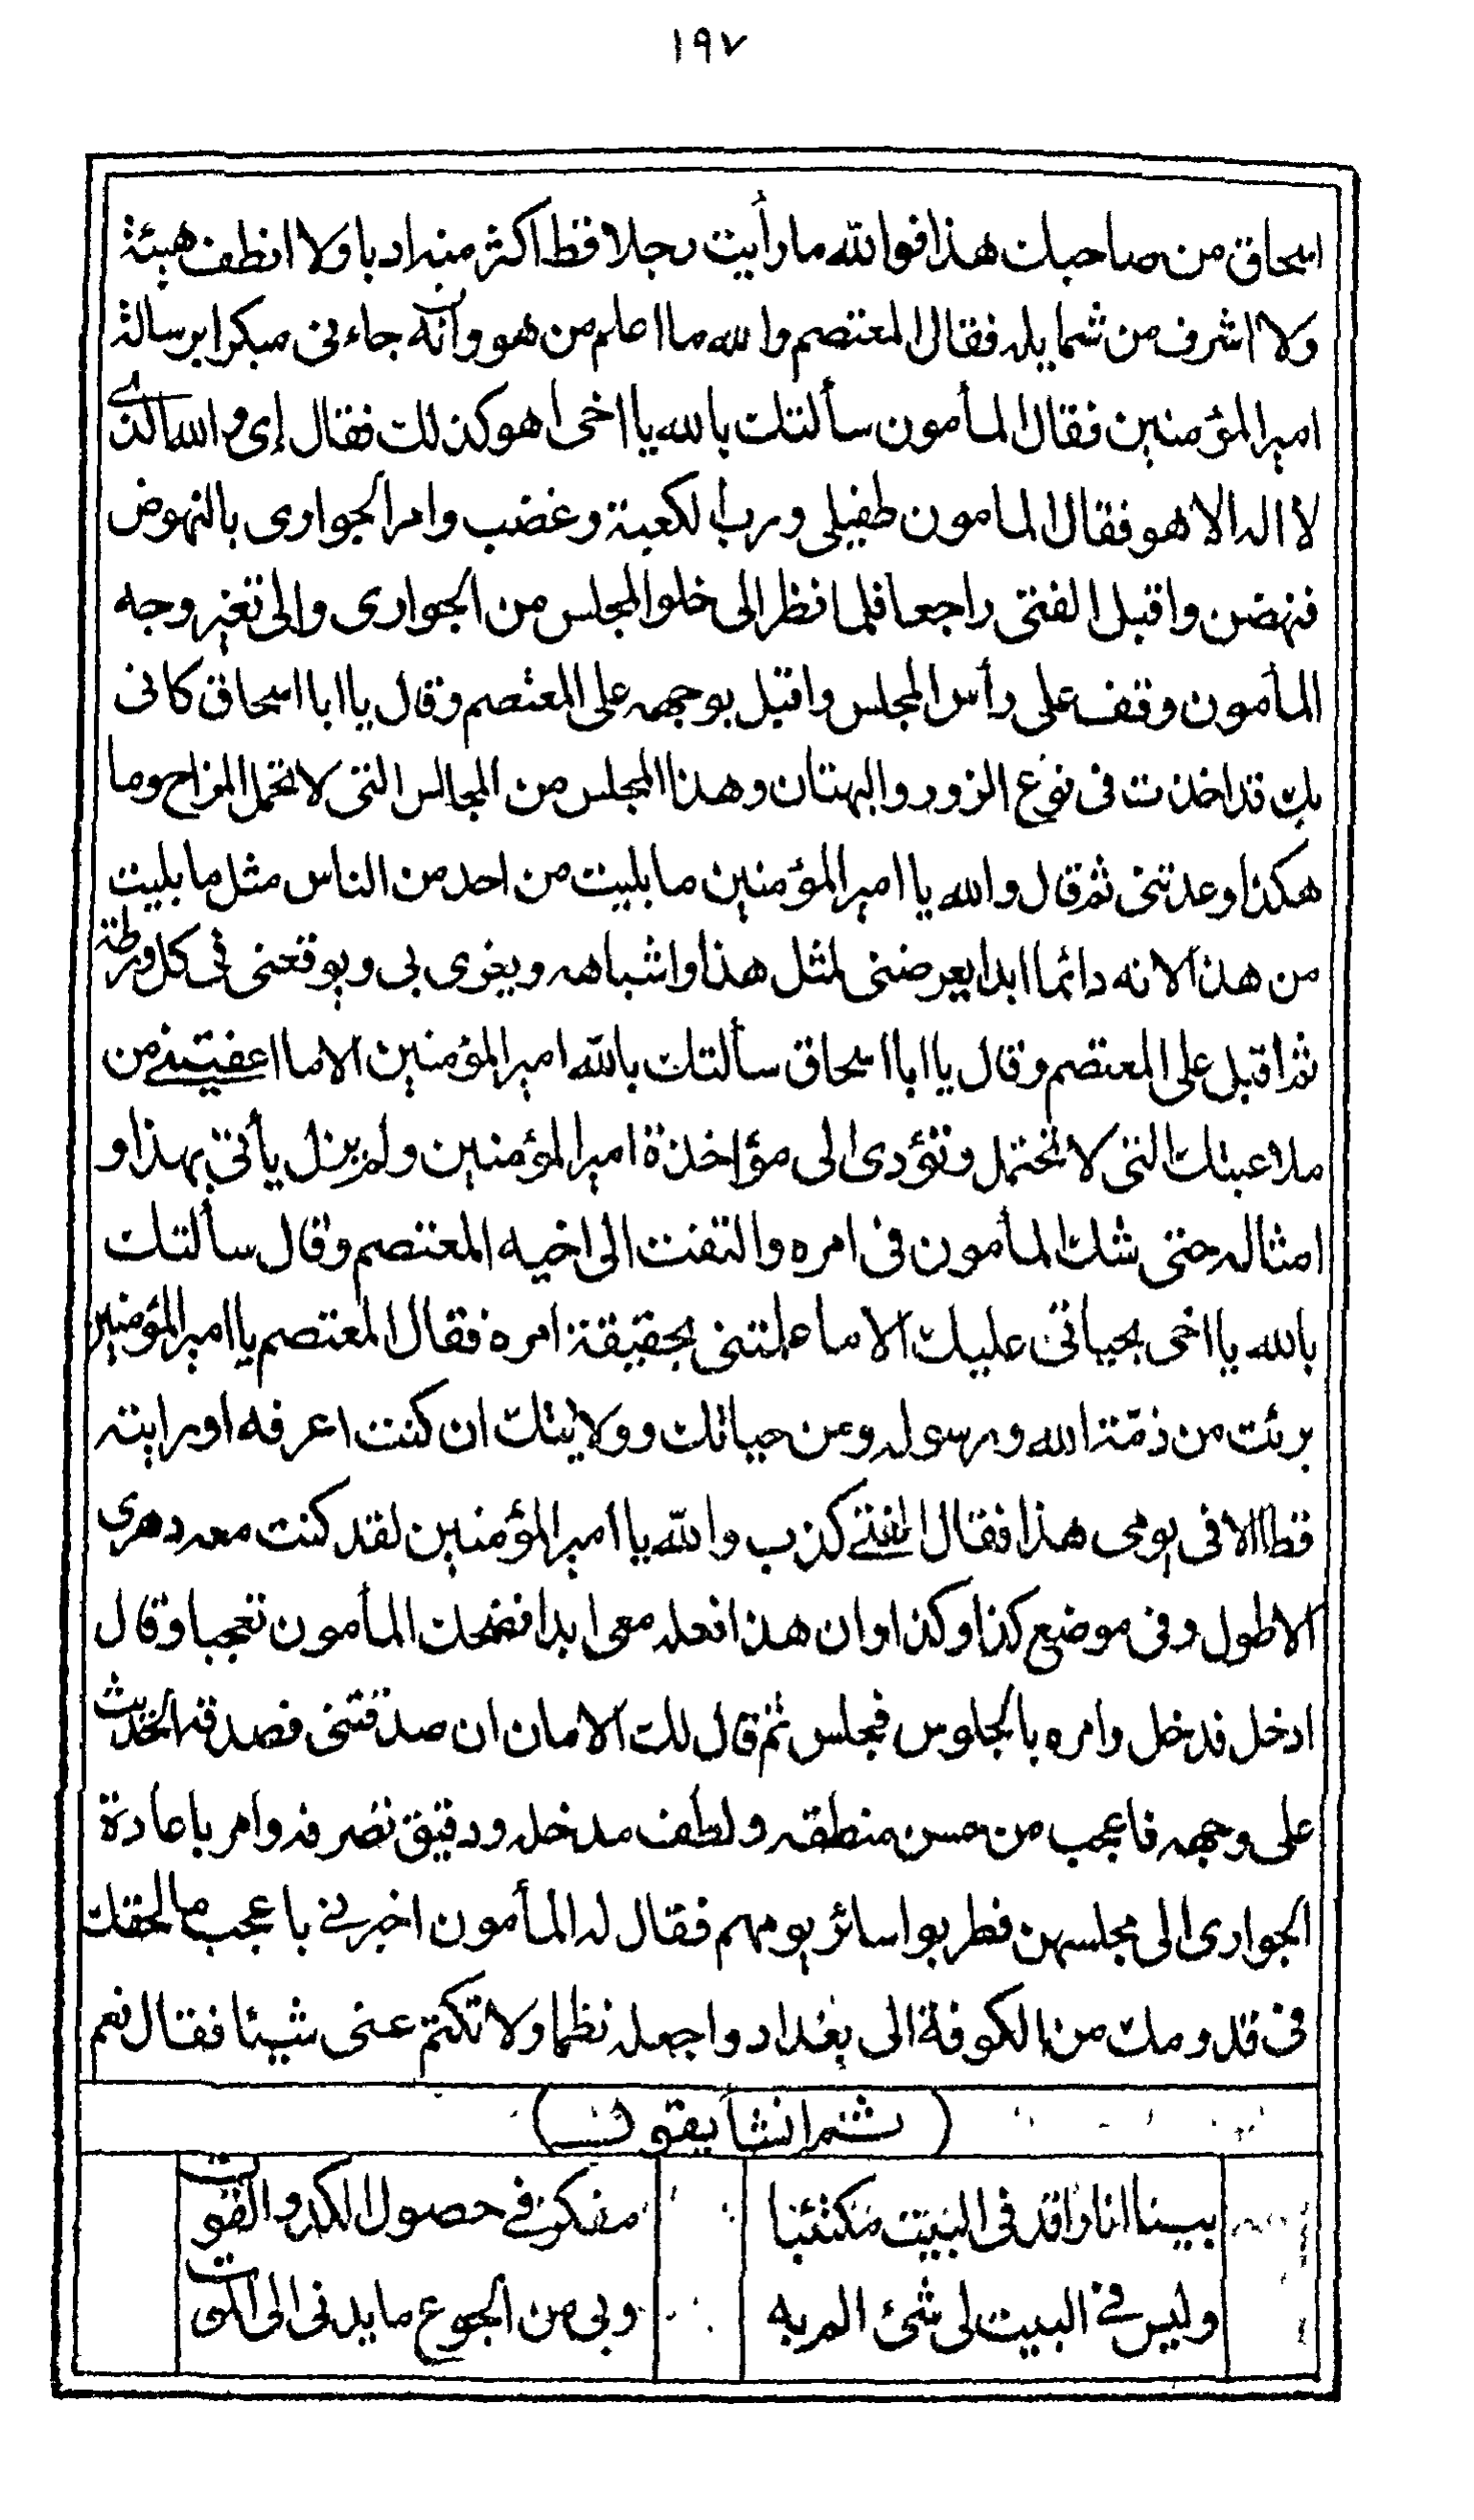 ١٩٧
اسحاق من صاحبك هذا فوالله ما رأيت رجلا قط اكثر منه ادبا ولا انظف هيئة
ولا اشرف من شمايله فقال المعتصم والله ما اعلم من هو وانه جاءنى مبكرا برسالة
امير المؤمنين فقال المأمون سألتك بالله يا اخى اهو كذلك فقال إى والله الذى
لا اله الا هو فقال المامون طفيلى ورب الكعبة وغضب وامر الجوارى بالنهوض
فنهضن واقبل الفتى راجعا فلما نظر الى خلو المجلس من الجوارى والى تغير وجه
المأمون وقف على رأس المجلس واقبل بوجهه على المعتصم وقال يا ابا اسحاق كانى
بك قد اخذت فى نوع الزور والبهتان وهذا المجلس من المجالس التى لا تحمل المزاح وما
هكذا وعدتنى ثم قال والله يا امير المؤمنين ما بليت من احد من الناس مثل ما بليت
من هذا لانه دائما ابدا يعرضنى لمثل هذا واشباهه ويغرى بى ويوقعنى فى كل ورطة
ثم اقبل على المعتصم وقال يا ابا اسحاق سألتك بالله امير المؤمنين الا ما اعفيتنى من
ملاعبتك التى لا تحتمل وتؤدى الى مؤاخذة امير المؤمنين ولم يزل يأتى بهذا و
امثاله حتى شك المأمون فى امره والتفت الى اخيه المعتصم وقال سألتك
بالله يا اخى بحياتى عليك الا ما علمتنى بحقيقة امره فقال المعتصم يا امير المؤمنين
برئت من ذمة الله ورسوله ومن حياتك وولايتك ان كنت اعرفه او رايته
قط الا فى يومى هذا فقال الفتى كذب والله يا امير المؤمنين لقد كنت معه دهرى
الاطول وفى موضع كذا وكذا وان هذا فعله معى ابدا فضحك المأمون تعجبا وقال
ادخل فدخل وامره بالجلوس فجلس ثم قال لك الامان ان صدقتنى فصدقه الحديث
على وجهه فاعجب من حسن منطقه ولطف مدخله ودقيق تصرفه وامر باعادة
الجوارى الى مجلسهن فطربوا سائر يومهم فقال له المأمون اخبرنى باعجب ما لحقك
فى قدومك من الكوفة الى بغداد واجعله نظما ولا تكتم عنى شيئا فقال نعم
(ثم انشأ يقول)
بينا انا راقد فى البيت مكتئبا مفكر فى حصول الكد والقوت
وليس فى البيت لى شئ المر به وبى من الجوع ما يدنى الى الموت